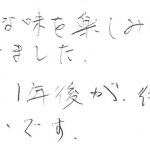 な味を楽しみ
ました.
1年後が.
です.